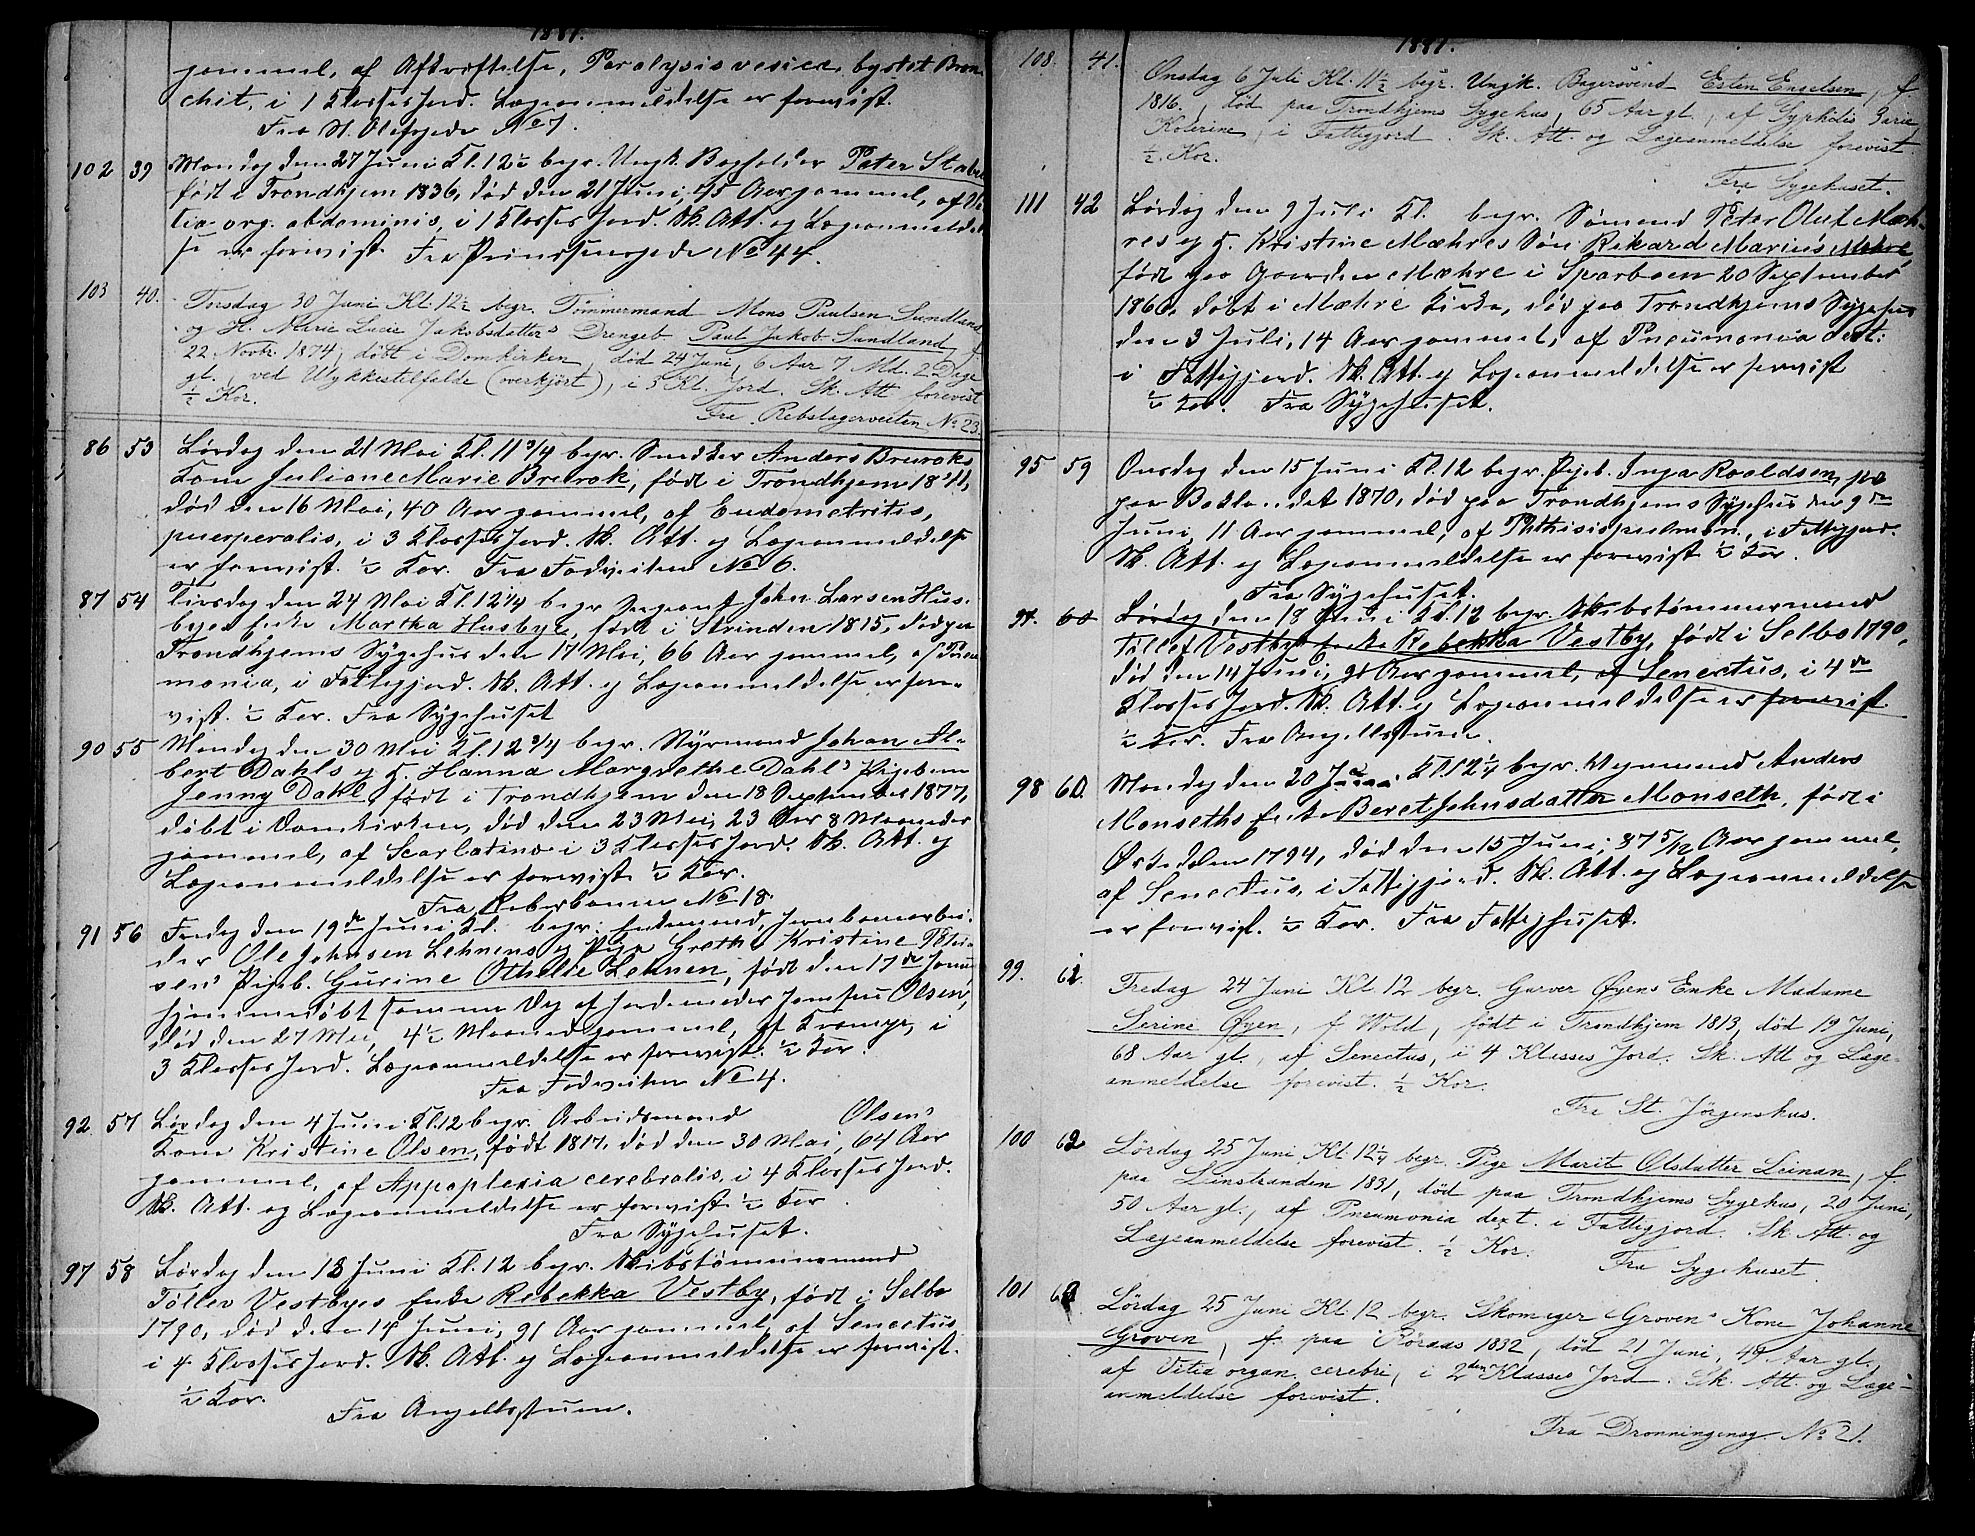 1881.
gammel, af Afkræftelse, Paralysis vesicæ, bystet Bron-
chit, i 1 Klasses Jord. Lægeanmeldelse er forevist.
Fra St. Olafsgade No 7.
102 39 Mandag den 27 Juni Kl. 12½ begr. Ungk. Bogholder Peter Stabe
født i Trondhjem 1836, død den 21 Juni, 45 Aar gammel, af Vi-
tia org. abdominis, i 1 Klasses Jord. Sk. Att. og Lægeanmeldel-
se er forevist. Fra Prindsensgade No 44.
103 40. Torsdag 30 Juni Kl. 12½ begr. Tømmermand Mons Paulsen Sundland
og H. Marie Lucie Jakobsdatters Drengeb. Paul Jakob Sundland, f.
22 Novbr. 1874, døbt i Domkirken, død 24 Juni, 6 Aar 7 Md. 2 Dage
gl., ved Ulykkestilfælde (overkjørt), i 3 Kl. Jord. Sk. Att forevist
½ Kor.
Fra Rebslagerveiten No 23.
86 53 Lørdag den 21 Mai Kl. 11¾ begr. Snedker Anders Brevaks
Kone Juliane Marie Brevak, født i Trondhjem 1841,
død den 16 Mai, 40 Aar gammel, af Endometritis,
puerperalis, i 3 Klasses Jord. Sk. Att. og Lægeanmeldelse
er forevist. ½ Kor. Fra Fadveiten No 6.
87 54 Tirsdag den 24 Mai Kl. 12¼ begr. Sergeant John Larsen Hus-
byes Enke Martha Husbye, født i Strinden 1815, død paa
Trondhjems Sygehus den 17 Mai, 66 Aar gammel, af Pneu
monia, i Fattigjord. Sk. Att. og Lægeanmeldelse er fore-
vist. ½ Kor. Fra Sygehuset
90 55 Mandag den 30 Mai Kl. 12¾ begr. Styrmand Johan Al-
bert Dahls og H. Hanna Margrethe Dahls Pigebarn
Jenny Dahl, født i Trondhjem den 18 September 1877,
døbt i Domkirken, død den 23 Mai, 23 Aar 8 Maaneder
gammel, af Scarlatina i 3 Klasses Jord. Sk. Att. og
Lægeanmeldelse er forevist ½ Kor.
Fra Reberbanen No 18.
91 56 Fredag den 19de Juni Kl. begr. Enkemand, Jernbanearbei-
der Ole Johnsen Lehnens og Pige Grethe Kristine
sens Pigeb. Gurine Othelie Lehnen, født den 17de Janu
hjemmedøbt samme Dag af Jordemoder Olsen,
død den 27 Mai, 4½ Maaned gammel, af Krampe, i
3 Klasses Jord. Lægeanmeldelse er forevist. ½ Kor.
Fra Fadveiten No 4.
92 57 Lørdag den 4 Juni Kl. 12 begr. Arbeidsmand Olsens
Kone Kristine Olsen, født 1817, død den 30 Mai, 64 Aar
gammel, af Appoplexia cerebralis, i 4 Klasses Jord.
Sk. Att. og Lægeanmeldelse er forevist. ½ Kor
Fra Sygehuset.
97 58 Lørdag den 18 Juni Kl. 12 begr. Skibstømmermand
Tøllev Vestbyes Enke Rebekka Vestby, født i Selbo
1790, død den 14 Juni, 91 Aar gammel, af Senectus,
i 4 Klasses Jord. Sk. Att. og Lægeanmeldelse er forevist.
½ Kor.
Fra Angellsstuen.
1881.
108. 41. Onsdag 6 Juli Kl. 11½ begr. Ungk. Bagersvend Esten Engelsen, f.
1816, død paa Trondhjems Sygehus, 65 Aar gl., af Syphilis
Kolerine, i Fattigjord. Sk. Att. og Lægeanmeldelse forevist
½ Kor.
Fra Sygehuset.
111 42 Lørdag den 9 Juli Kl. begr. Sømand Peter Oluf Mæh-
res og H. Kristine Mæhres Søn Rikard Marius Mæhre,
født paa Gaarden Mæhre i Sparboen 20 September
1860, døbt i Mæhre Kirke, død paa Trondhjems Sygehus
den 3 Juli, 14 Aar gammel, af Pneumonia dext.
i Fattigjord. Sk. Att. og Lægeanmeldelse er forevist
½ Kor. Fra Sygehuset.
95 59 Onsdag den 15 Juni Kl. 12 begr. Pigeb. Inga Roaldsen,
paa Baklandet 1870, død paa Trondhjems Sygehus den 9de
Juni, 11 Aar gammel, af Phthisis pulmon., i Fattigjord.
Sk. Att. og Lægeanmeldelse er forevist ½ Kor.
Fra Sygehuset.
97. 60 Lørdag den 18 Juni Kl. 12 begr. Skibstømmermand
Tøllef Vestbys Enke Rebekka Vestby, født i Selbo 1790,
død den 14 Juni, 91 Aar gammel, af Senectus, i 4de
Klasses Jord. Sk. Att. og Lægeanmeldelse er forevist.
½ Kor. Fra Angellsstuen.
98 60. Mandag den 20 Juni Kl. 12¼ begr. Anders
Monseths Enke Beret Johnsdatter Monseth, født i
Ørkedalen 1794, død den 15 Juni, 87 5/12 Aar gammel,
af Senectus, i Fattigjord. Sk. Att. og Lægeanmeldelse
er forevist. ½ Kor. Fra Fattighuset.
99. 61. Fredag 24 Juni Kl. 12 begr. Garver Øyens Enke Madame
Serine Øyen, f. Wold, født i Trondhjem 1813, død 19 Juni,
68 Aar gl., af Senectus, i 4 Klasses Jord. Sk. Att og Læge-
anmeldelse forevist. ½ Kor.
Fra St. Jørgenshus.
100 62 Lørdag 25 Juni Kl. 12¼ begr. Pige Marit Olsdatter Leinan, f.
paa Leinstranden 1831, død paa Trondhjems Sygehus, 20 Juni,
50 Aar gl., af Pneumonia dext. i Fattigjord. Sk. Att. og
Lægeanmeldelse forevist. ½ Kor.
Fra Sygehuset.
101 63. Lørdag 25 Juni Kl. 12 begr. Skomager Grovens Kone Johanne
Groven, f. paa Röraas 1832, død 21 Juni, 49 Aar gl.,
af Vitia organ. cerebri, i 2den Klasses Jord. Sk. Att og Læge-
anmeldelse forevist.
Fra Dronningensg. No 21.